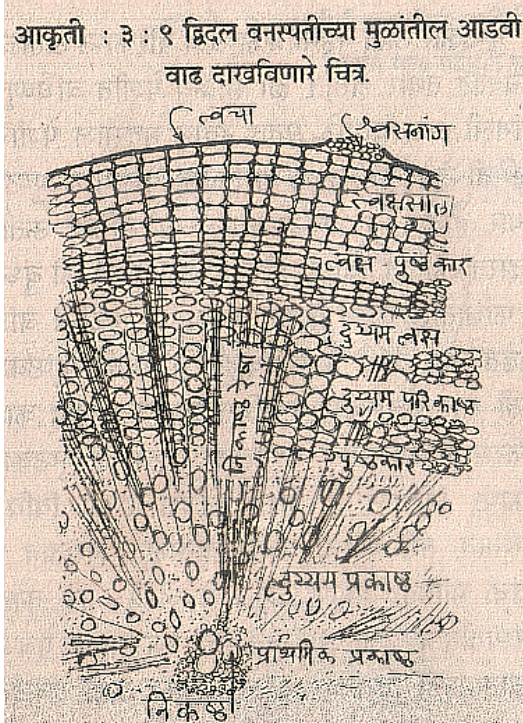 आकृती : ३ : ९ द्विदल वनस्पतीच्या मुळांतील आडवी
वाढ दाखविणारे चित्र.
त्वचा
श्वसनांग
त्वक्षसाल
त्वक्ष पुष्ठकार
दुय्यम त्वक्ष
निकाष्ठ रेषा
दुय्यम परिकाष्ठ
पुष्ठकार
दुय्यम प्रकाष्ठ
प्राथमिक प्रकाष्ठ
निकाष्ठ